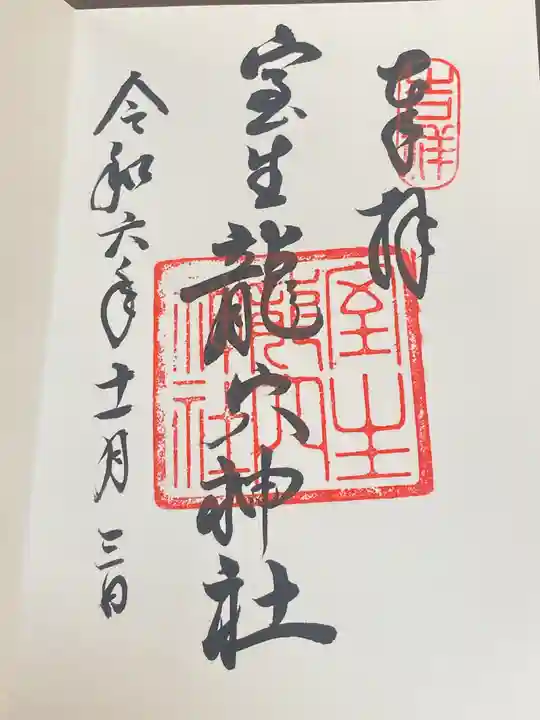 奉拝
吉祥
室生龍穴神社
室生龍穴神社
令和六年十一月三日